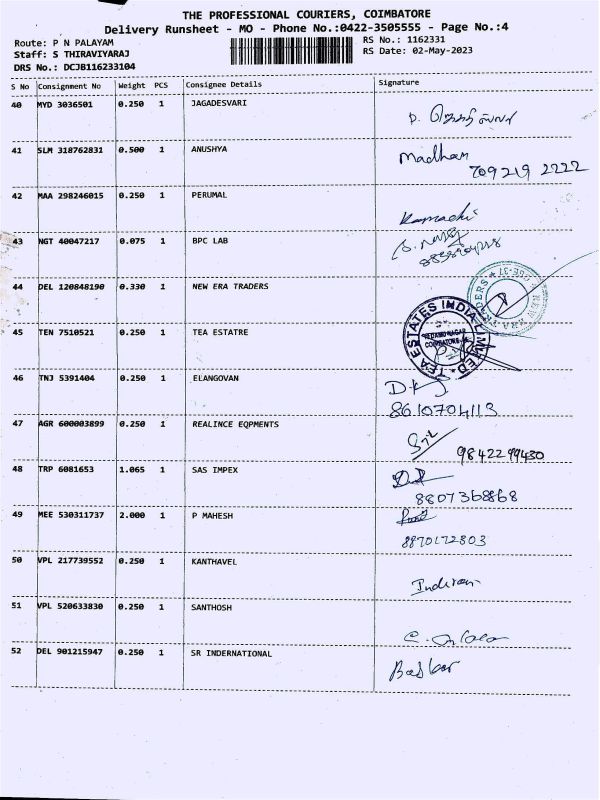 THE PROFESSIONAL COURIERS, COIMBATORE
Delivery Runsheet - MO - Phone No.:0422-3505555 - Page No.:4
Route: P N PALAYAM
RS No.: 1162331
Staff: S THIRAVIYARAJ
RS Date: 02-May-2023
DRS No.: DCJB116233104
S No Consignment No Weight PCS Consignee Details Signature
40 MYD 3036501 0.250 1 JAGADESVARI
41 SLM 318762831 0.500 1 ANUSHYA Madhan
709219 2222
42 MAA 298246015 0.250 1 PERUMAL
Kamachi
43 NGT 40047217 0.075 1 BPC LAB
44 DEL 120848190 0.330 1 NEW ERA TRADERS
45 TEN 7510521 0.250 1 TEA ESTATRE
TEA ESTATES INDIA LIMITED
46 TNJ 5391404 0.250 1 ELANGOVAN
8610704113
47 AGR 600003899 0.250 1 REALINCE EQPMENTS
9842299430
48 TRP 6081653 1.065 1 SAS IMPEX
8807368868
49 MEE 530311737 2.000 1 P MAHESH
8870172803
50 VPL 217739552 0.250 1 KANTHAVEL
51 VPL 520633830 0.250 1 SANTHOSH
52 DEL 901215947 0.250 1 SR INDERNATIONAL
Baskar